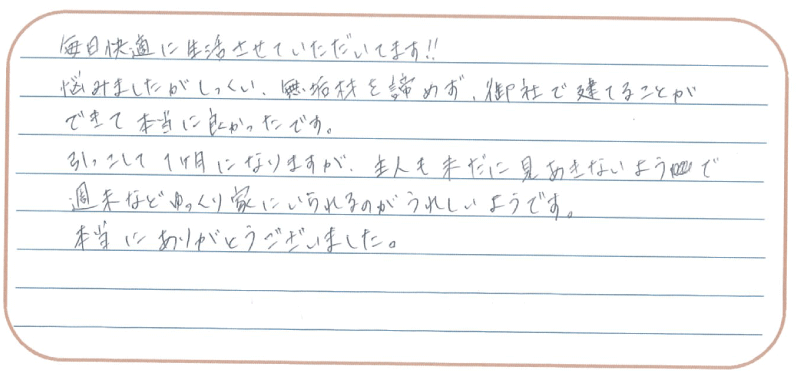 毎日快適に生活させていただいてます!!
悩みましたがしっくい、無垢材を諦めず、御社で建てることが
できて本当に良かったです。
引っこして1ヶ月になりますが、主人も未だに見あきないようで
週末などゆっくり家にいられるのがうれしいようです。
本当にありがとうございました。